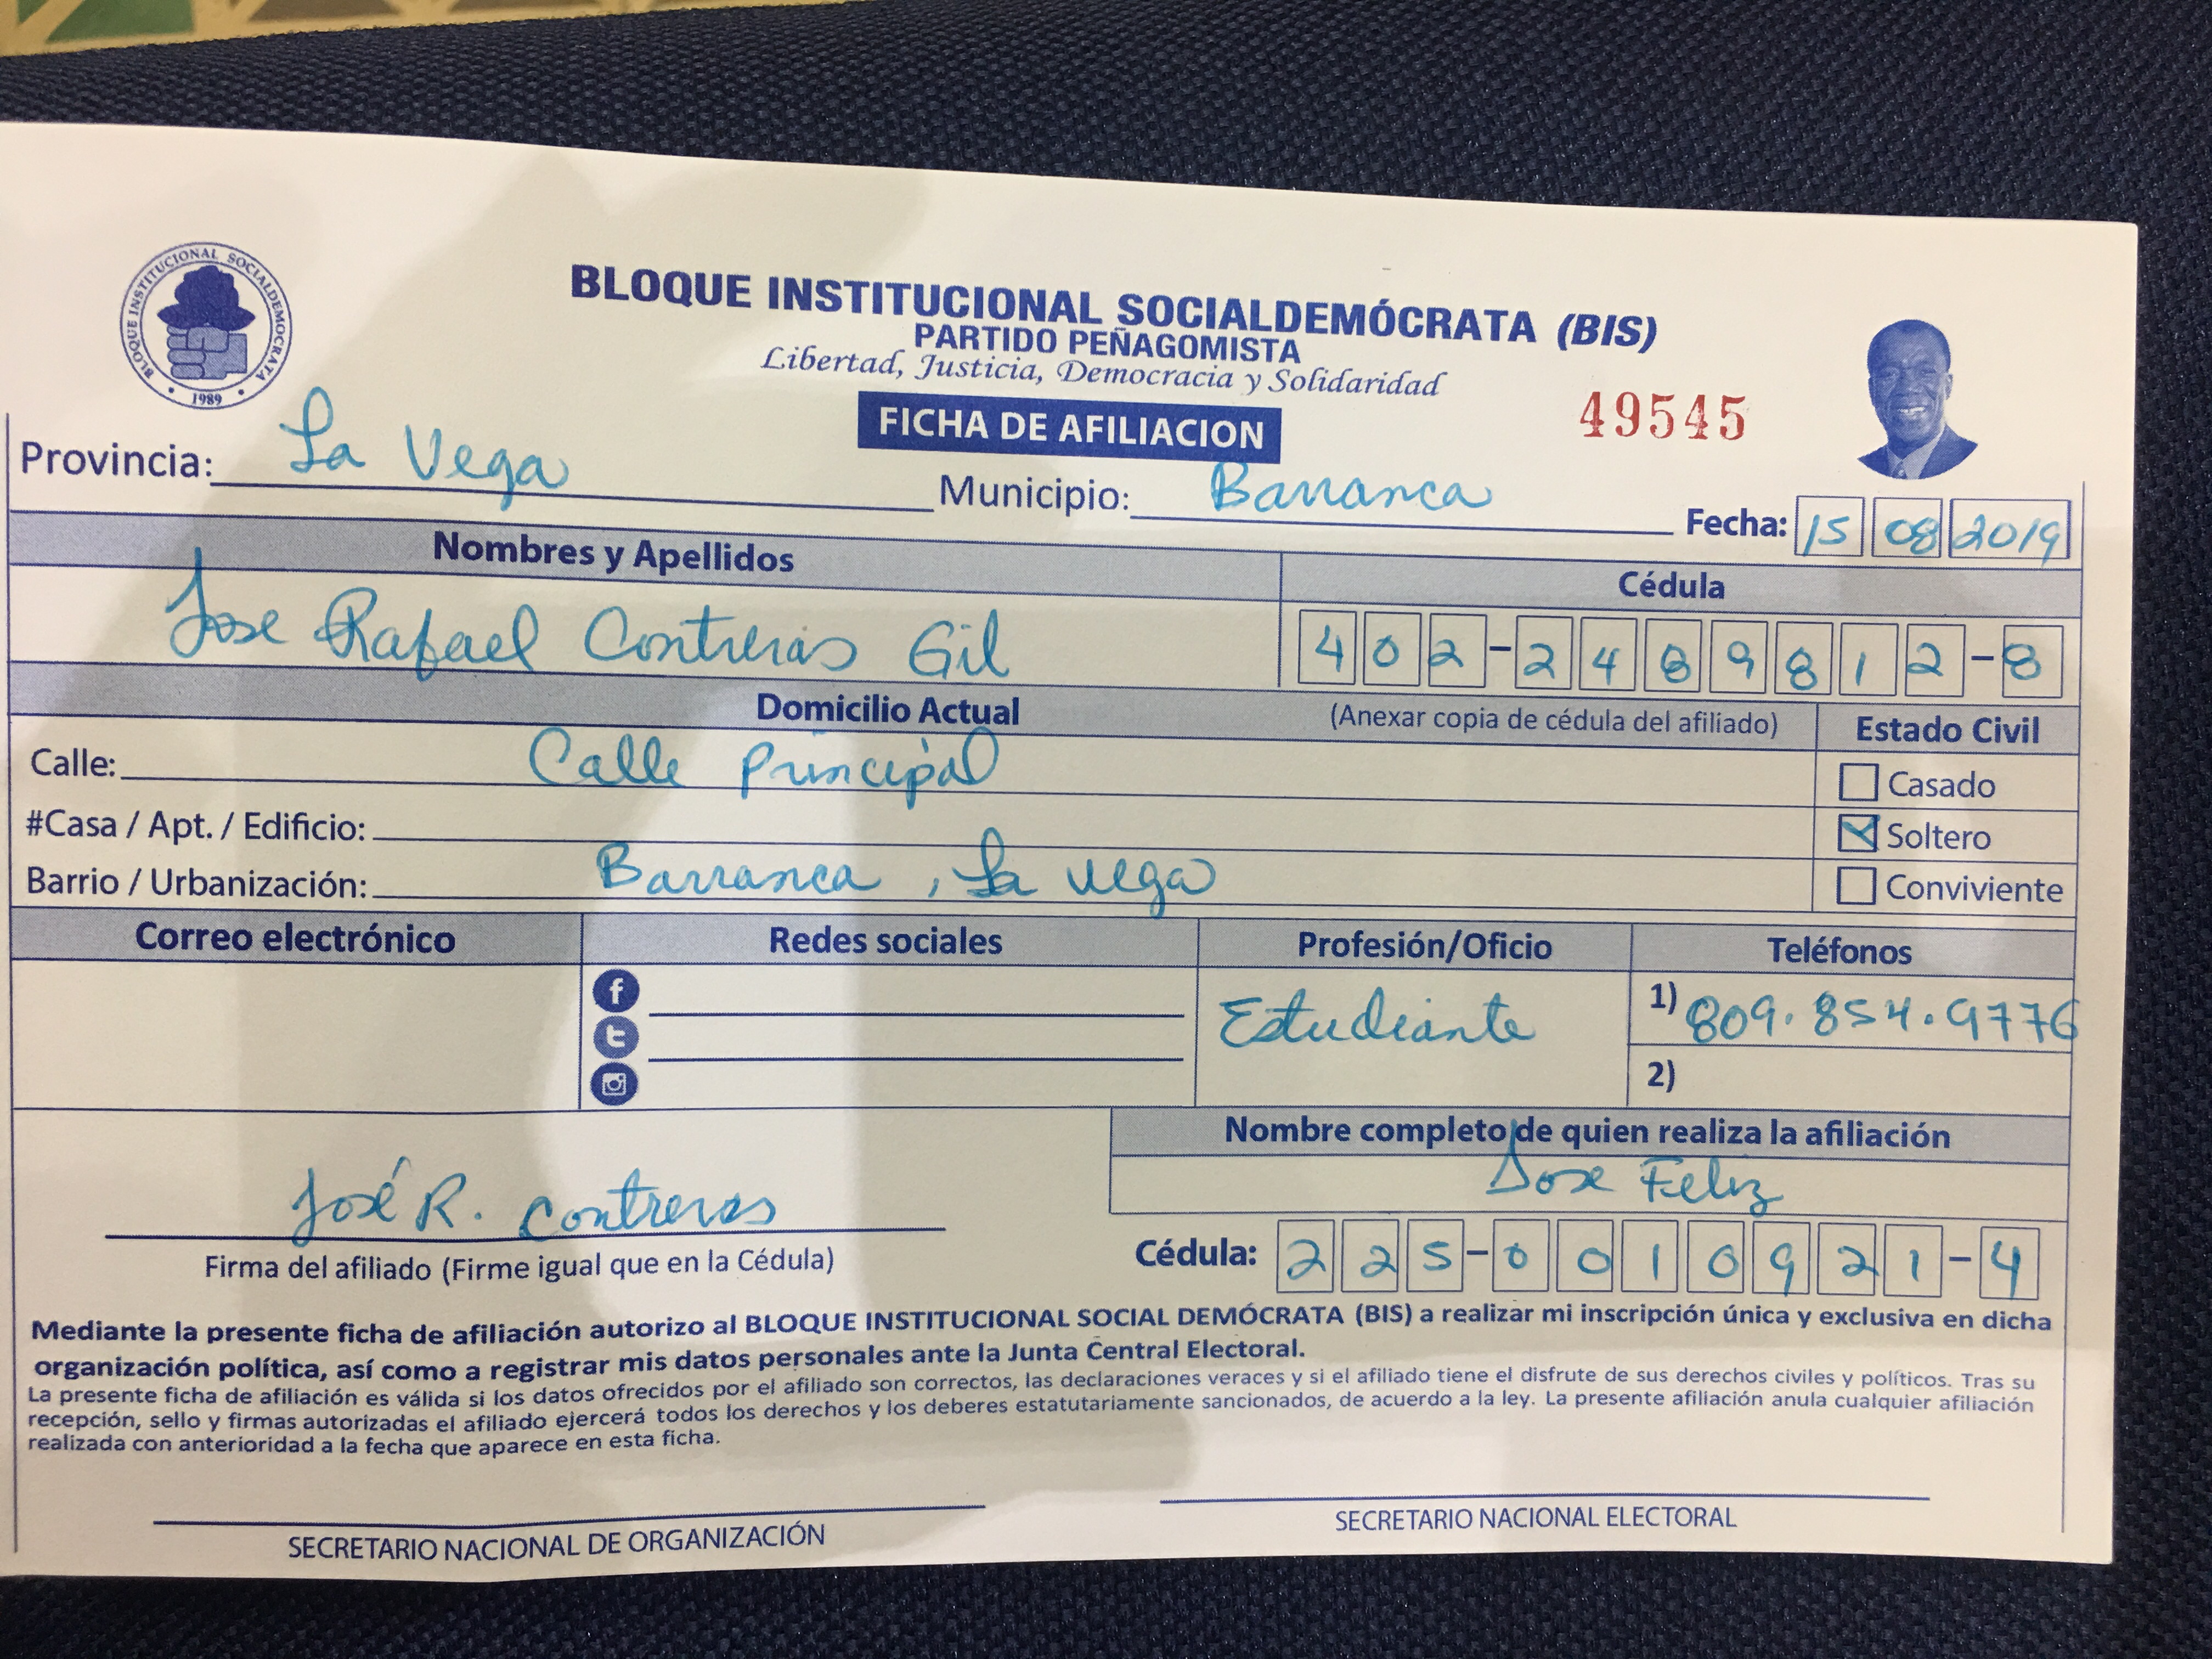 BLOQUE INSTITUCIONAL SOCIALDEMOCRATA
1989
BLOQUE INSTITUCIONAL SOCIALDEMÓCRATA (BIS)
PARTIDO PEÑAGOMISTA
Libertad, Justicia, Democracia y Solidaridad
FICHA DE AFILIACION
49545
Provincia: La Vega Municipio: Barranca Fecha: 15 08 2019
Nombres y Apellidos Cédula
Jose Rafael Contreras Gil 402-2489812-8
Domicilio Actual (Anexar copia de cédula del afiliado) Estado Civil
Calle: Calle Principal Casado
#Casa / Apt. / Edificio: Soltero
Barrio / Urbanización: Barranca, La Vega Conviviente
Correo electrónico Redes sociales Profesión/Oficio Teléfonos
Estudiante 1) 809.854.9776
2)
Nombre completo de quien realiza la afiliación
Jose Feliz
José R. Contreras
Firma del afiliado (Firme igual que en la Cédula) Cédula: 225-0010921-4
Mediante la presente ficha de afiliación autorizo al BLOQUE INSTITUCIONAL SOCIAL DEMÓCRATA (BIS) a realizar mi inscripción única y exclusiva en dicha
organización política, así como a registrar mis datos personales ante la Junta Central Electoral.
La presente ficha de afiliación es válida si los datos ofrecidos por el afiliado son correctos, las declaraciones veraces y si el afiliado tiene el disfrute de sus derechos civiles y políticos. Tras su
recepción, sello y firmas autorizadas el afiliado ejercerá todos los derechos y los deberes estatutariamente sancionados, de acuerdo a la ley. La presente afiliación anula cualquier afiliación
realizada con anterioridad a la fecha que aparece en esta ficha.
SECRETARIO NACIONAL DE ORGANIZACIÓN SECRETARIO NACIONAL ELECTORAL